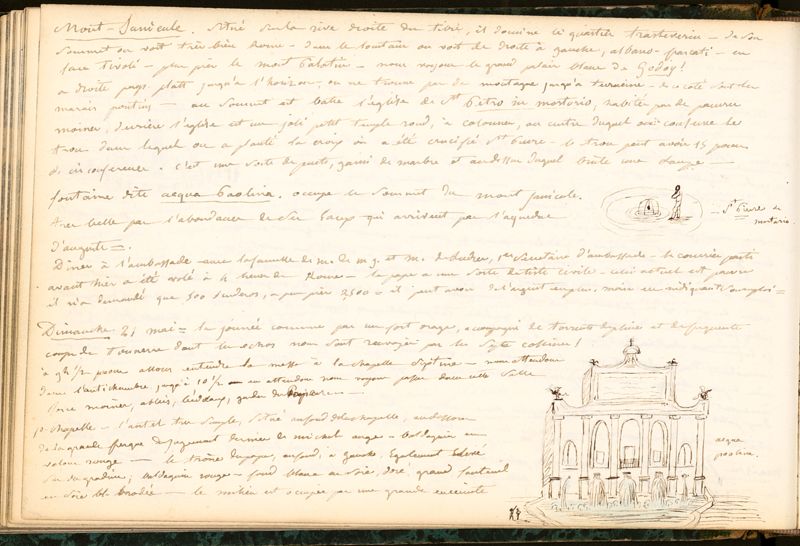 Mont-Janicule. Situé sur la rive droite du tibre, il domine le quartier trasteverin - de son
sommet on voit très bien Rome - dans le lointain on voit de droite à gauche, albano - frascati - en
face tivoli - plus près le mont Palatin - nous voyons le grand palais blanc de Godoy!
à droite pays plat jusqu'à l'horizon; on ne trouve pas de montagne jusqu'à terracine - de ce côté sont les
marais pontins - au sommet est bâtie l'église de St Pietro in montorio, habitée par de pauvres
moines, derrière l'église est un joli petit temple rond, à colonnes, au centre duquel on conserve le
trou dans lequel on a planté la croix où a été crucifié St Pierre - le trou peut avoir 15 pouces
de circonférence. c'est une sorte de puits, garni de marbre et au dessus duquel brûle une lampe -
fontaine dite acqua Paolina. occupe le sommet du mont janicule.
très belle par l'abondance de ses eaux qui arrivent par l'aqueduc
d'auguste =.
St Pierre in
montorio.
Dîner à l'ambassade - avec la famille de m. de et m. de 1er Secrétaire d'ambassade - le courrier parti
avant hier a été volé à 4 heures de Rome - le pape a une sorte de liste civile - celui actuel est pauvre
il n'a demandé que 500 à peu près 2,500 = il peut avoir de l'argent
Dimanche 21 mai = la journée commence par un fort orage, accompagné de torrents de pluie et de fréquents
coups de tonnerre dont les échos nous sont renvoyés par les Sept collines!
à 9h 1/2 nous allons entendre la messe à la chapelle Sixtine - nous attendons
dans l'antichambre jusqu'à 10 1/2 - en attendant nous voyons passer dans cette salle
moines, abbés, bedeaux, gardes du Pape -
chapelle - l'autel très simple, situé au fond de la chapelle, au dessous
de la grande fresque du jugement dernier de michel ange - baldaquin en
velours rouge - le trône du pape, au fond, à gauche, également élevé
sur des gradins; baldaquin rouge - fond blanc en soie, doré grand fauteuil
en soie bl. brodée - le milieu est occupé par une grande enceinte
acqua
paolina.